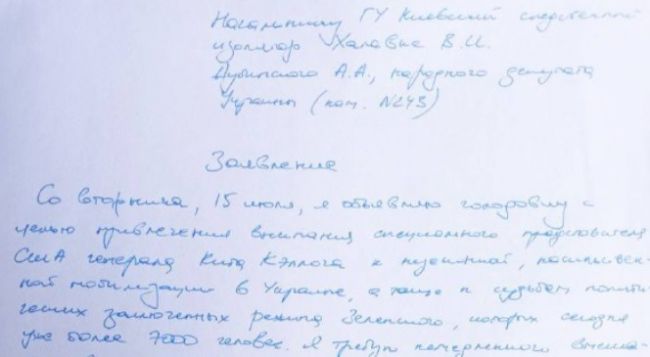 Начальнику ГУ Киевский следственный
изолятор Хадавие В.И.
Дубинского А.А., народного депутата
Украины (кам. №243)
Заявление
Со вторника, 15 июля, я объявляю голодовку с
целью привлечения внимания специального представителя
США генерала Кита Кэллога к публичной, насильствен
ной мобилизации в Украине, а также к судьбам полити
ческих заключенных режима Зеленского, которых сегодня
уже более 7000 человек. Я требую немедленного